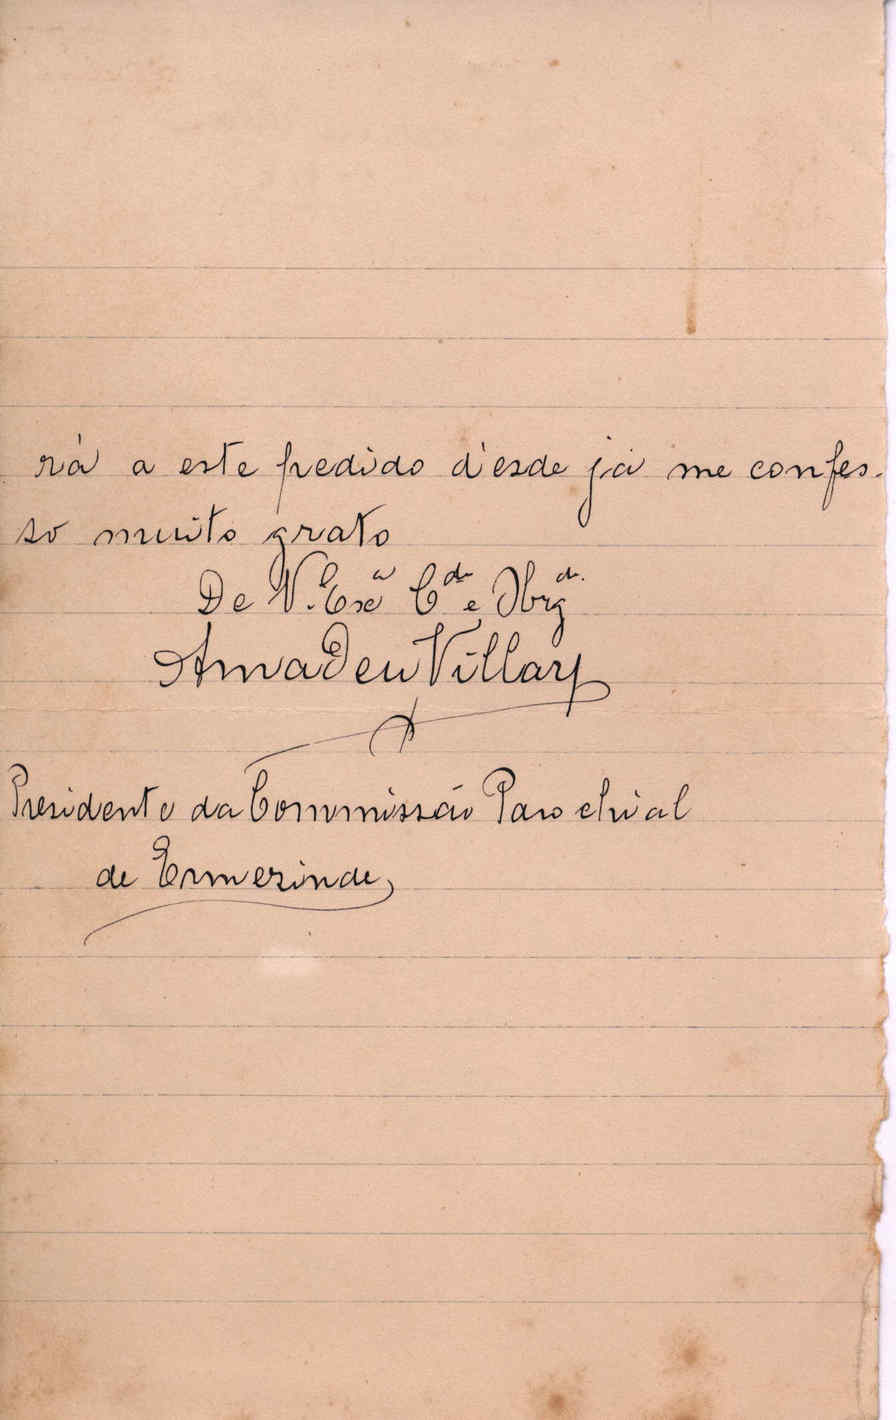 rá a este pedido d'esde já me confes-
so muito grato
De V. Exª Cdo e Obrgdo.
Amadeu Villar
Presidente da Commissão Parochial
de Ermezinde